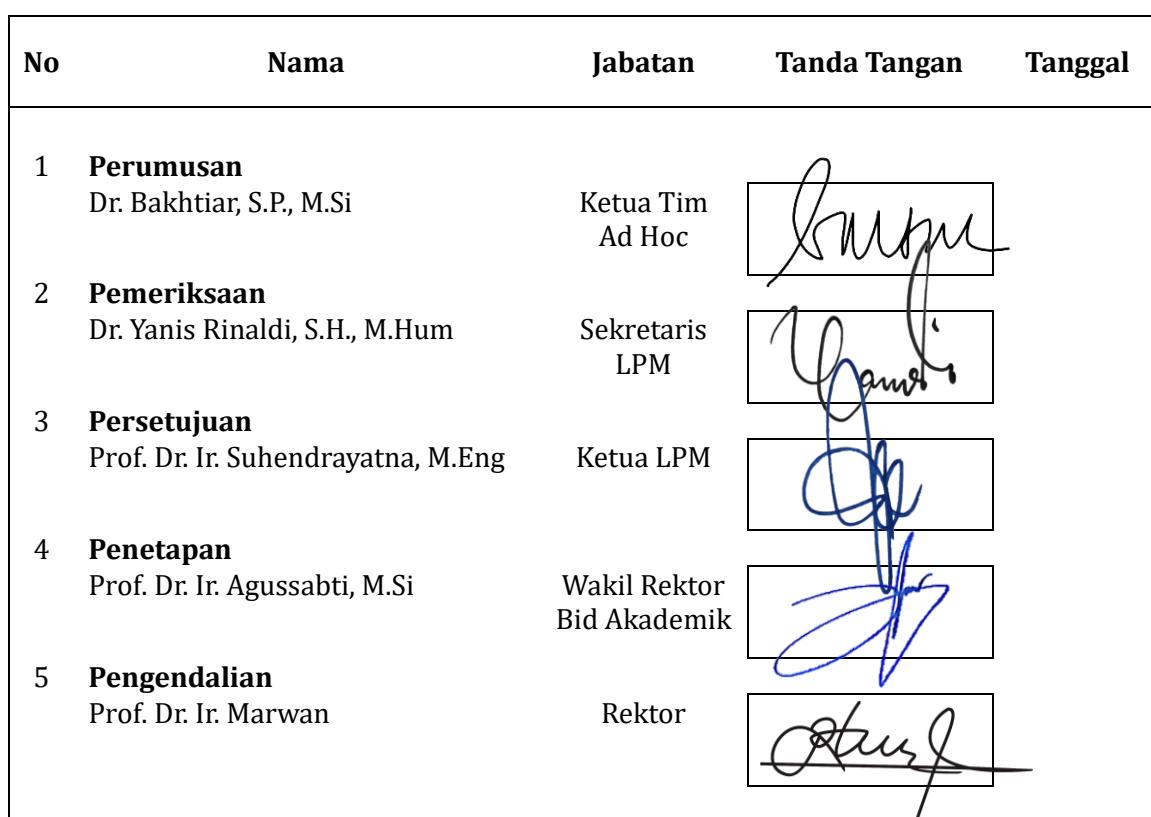 No Nama Jabatan Tanda Tangan Tanggal
1 Perumusan
Dr. Bakhtiar, S.P., M.Si Ketua Tim
Ad Hoc
2 Pemeriksaan
Dr. Yanis Rinaldi, S.H., M.Hum Sekretaris
LPM
3 Persetujuan
Prof. Dr. Ir. Suhendrayatna, M.Eng Ketua LPM
4 Penetapan
Prof. Dr. Ir. Agussabti, M.Si Wakil Rektor
Bid Akademik
5 Pengendalian
Prof. Dr. Ir. Marwan Rektor